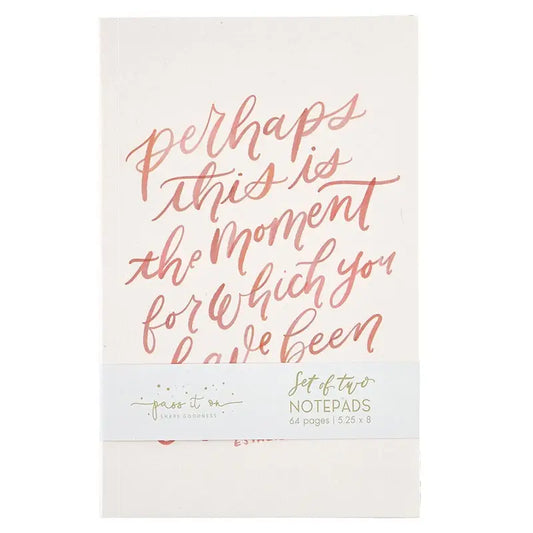 perhaps
this is
the moment
for which you
have been
pass it on
SHARE GOODNESS
Set of two
NOTEPADS
64 pages | 5.25 x 8